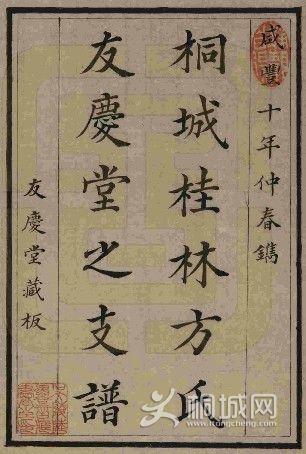 咸豐十年仲春鐫
桐城桂林方氏
友慶堂之支譜
友慶堂藏板
桐城网
itongcheng.com